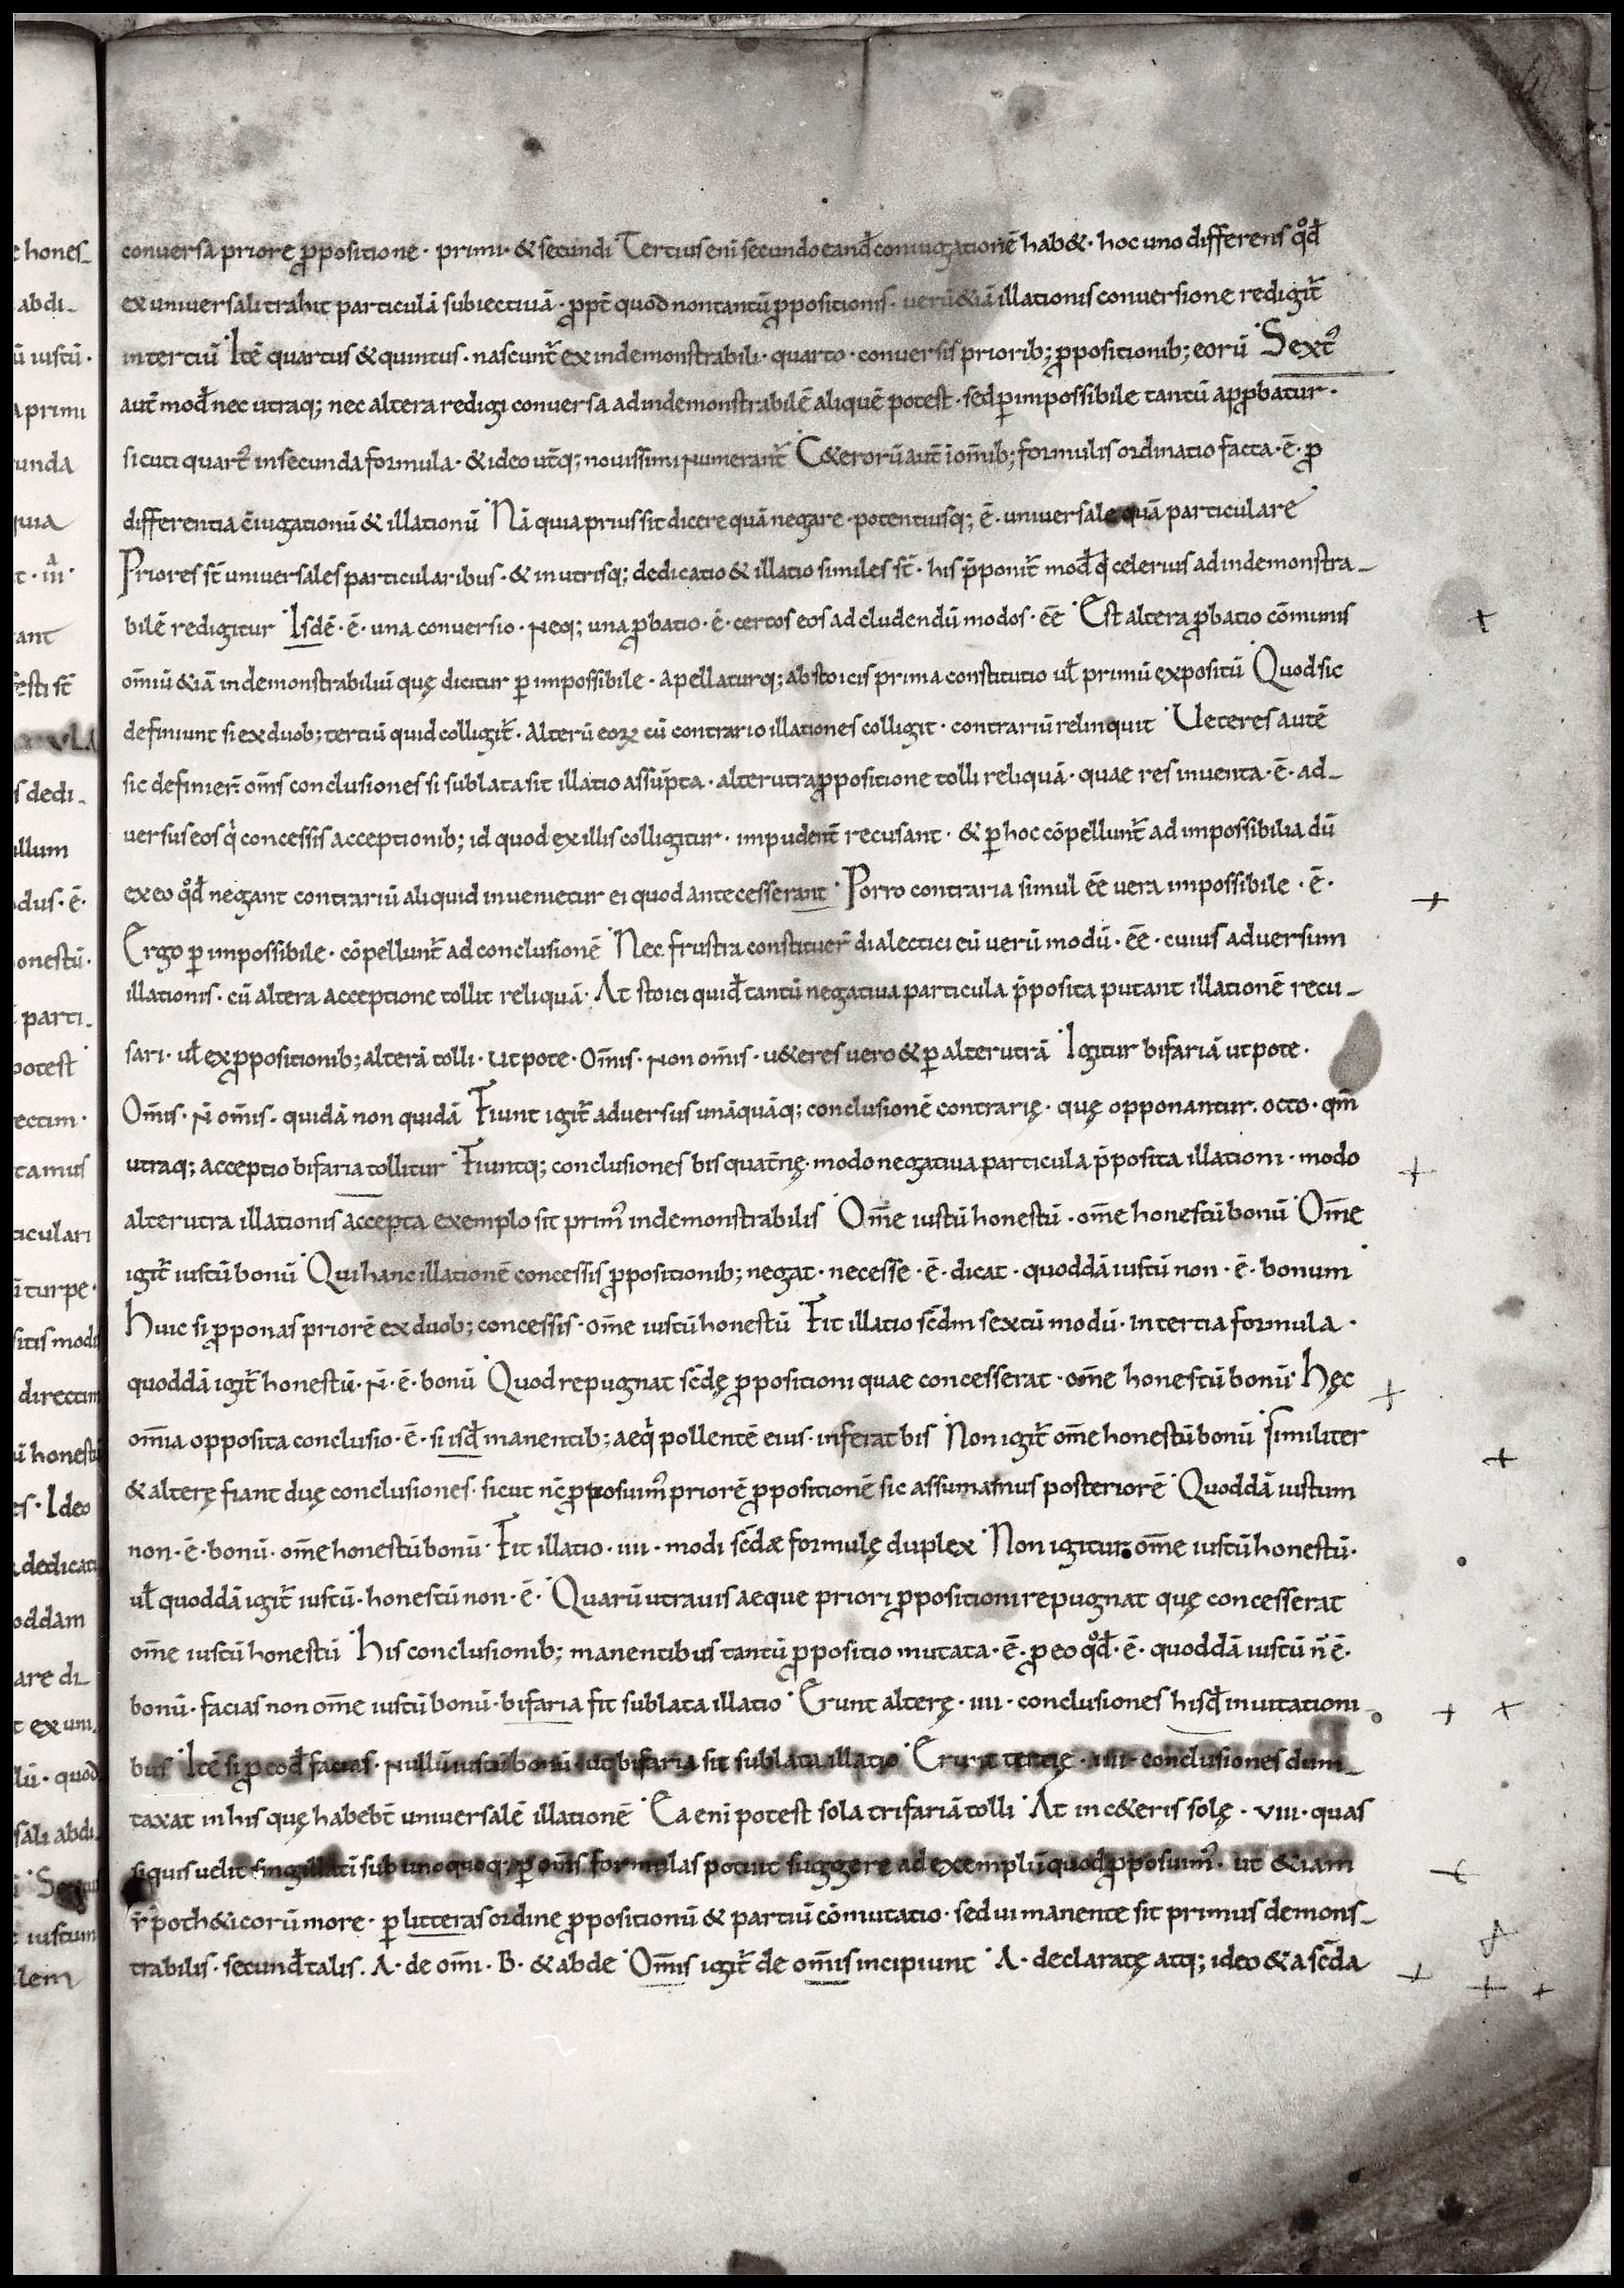 conversa priore ꝓpositione · primi · & secundi Tertius eni secundo eandē coniugationē hab& · hoc uno differens qđ
ex universali trahit particulā subiectivā · ꝓpt̄ quod non tantū ꝓpositionis · verū &iā illationis conversione redigit̄
in tertiū Itē quartus & quintus · nascunt̄ ex indemonstrabili · quarto · conversis priorib; ꝓpositionib; eorū Sext᾽
aut̄ mođ nec utraq; nec altera redigi conversa ad indemonstrabilē aliquē potest · sed ꝑ impossibile tantū apꝓbatur ·
sicuti quart᾽ in secunda formula · & ideo ut̄q; novissimi numerant̄ C&erorū aut̄ ī om̄ib; formulis ordinatio facta · ē · ꝓ
differentia c̄iugationū & illationū Nā quia prius sit dicere quā negare · potentiusq; ē · universale quā particulare
Priores st̄ universales particularibus · & in utrisq; dedicatio & illatio similes st̄ · his p̄ponit̄ mođ q̄ celerius ad indemonstra-
bilē redigitur Isdē · ē · una conversio · neq; una ꝓbatio · ē · certos eos ad cludendū modos · ēe Est altera ꝓbatio cōmunis
om̄iū &iā indemonstrabiliū quę dicitur ꝑ impossibile · apellaturq; ab stoicis prima constitutio uł primū expositū Quod sic
definiunt si ex duob; tertiū quid colligit̄ · alterū eoꝝ cū contrario illationes colligit · contrariū relinquit Ueteres autē
sic definier̄ om̄is conclusiones si sublata sit illatio assūpta · alterutra ꝓpositione tolli reliquā · quae res inventa · ē · ad-
versus eos q̇ concessis acceptionib; id quod ex illis colligitur · impudent̄ recusant · & ꝑ hoc cōpellunt̄ ad impossibilia dū
ex eo qđ negant contrariū aliquid invenietur ei quod ante cesserant Porro contraria simul ēe vera impossibile · ē ·
Ergo ꝑ impossibile · cōpellunt̄ ad conclusionē Nec frustra constituer̄ dialectici eū verū modū · ēe · cuius adversum
illationis · cū altera acceptione tollit reliquā · At stoici quiđ tantū negativa particula p̄posita putant illationē recu-
sari · uł ex ꝓpositionib; alterā tolli · ut pote · Om̄is · non om̄is · u&eres vero & ꝑ alterutrā Igitur bifariā ut pote ·
Om̄is · n̄ om̄is · quidā non quidā Fiunt igit̄ adversus unāquāq; conclusionē contrarię · quę opponantur · octo · qm̄
utraq; acceptio bifaria tollitur Fiuntq; conclusiones bis quat̄nę · modo negativa particula p̄posita illationi · modo
alterutra illationis accepta exemplo sit prim᾽ indemonstrabilis Om̄e iustū honestū · om̄e honestū bonū Om̄e
igit̄ iustū bonū Qui hanc illationē concessis ꝓpositionib; negat · necesse · ē · dicat · quoddā iustū non · ē · bonum
Huic si ꝓponas priorē ex duob; concessis · om̄e iustū honestū Fit illatio scđm sextū modū · in tertia formula ·
quoddā igit̄ honestū · n̄ · ē · bonū Quod repugnat scđę ꝓpositioni quae concesserat · om̄e honestū bonū · Hęc
om̄ia opposita conclusio · ē · si isđ manentib; aeq̇ pollentē eius · inferat bis Non igit̄ om̄e honestū bonū Similiter
& alterę fiant duę conclusiones · sicut nc̄ ꝓposuim᾽ priorē ꝓpositionē sic assumamus posteriorē Quoddā iustum
non · ē · bonū · om̄e honestū bonū · Fit illatio · iiii · modi scđæ formulę duplex Non igitur om̄e iustū honestū ·
uł quoddā igit̄ iustū · honestū non · ē · Quarū utravis aeque priori ꝓpositioni repugnat quę concesserat
om̄e iustū honestū His conclusionib; manentibus tantū ꝓpositio mutata · ē · ꝓ eo qđ · ē · quoddā iustū n̄ ē ·
bonū · facias non om̄e iustū bonū · bifaria fit sublata illatio Erunt alterę · iiii · conclusiones hisđ inuitationi
bus Itē si ꝓ eođ facias · nullū iustū bonū · ut bifaria sit sublata illatio Erunt tertię · iiii · conclusiones dum-
taxat in his quę habebt̄ universalē illationē Ea eni potest sola trifariā tolli At in c&eris solę · viii · quas
si quis uelit singillatī sub unoquoq; ꝑ om̄is formulas potiut suggere ad exemplū quod ꝓposuim᾽ · ut &iam
r̄ poth&icorū more · ꝑ litteras ordine ꝓpositionū & partiū cōmutatio · sed ui manente sit primus demons-
trabilis · secunđ talis · A · de om̄i · B · & ab de Om̄is igit̄ de om̄is incipiunt A · declaratę atq; ideo & a scđa